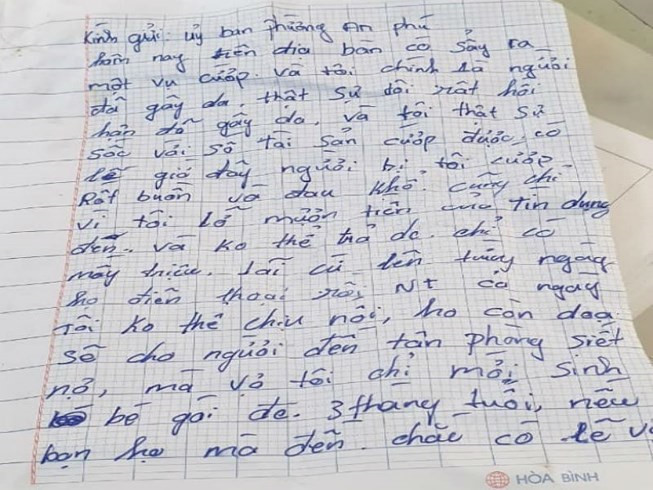 Kính gửi: uỷ ban Phường An phú
hôm nay trên địa bàn có sẩy ra
một vụ cướp. và tôi chính là người
đã gây da, thật sự tôi rất hối
hận đã gây da, và tôi thật sự
sốc với số tài sản cướp được, có
lẽ giờ đây người bị tôi cướp
Rất buồn và đau khổ. cũng chỉ
vì tôi lỡ mượn tiền của Tín dụng
đen. và ko thể trả dc. chỉ có
mấy triệu. lãi cứ lên từng ngày
họ điện thoại rồi NT cả ngày
Tôi ko thể chịu nổi, họ còn dọa
sẽ cho người đến tận phòng siết
nợ, mà vợ tôi chỉ mới sinh
bé gái dc. 3 tháng tuổi, nếu
bọn họ mà đến. chắc có lẽ
HÒA BÌNH